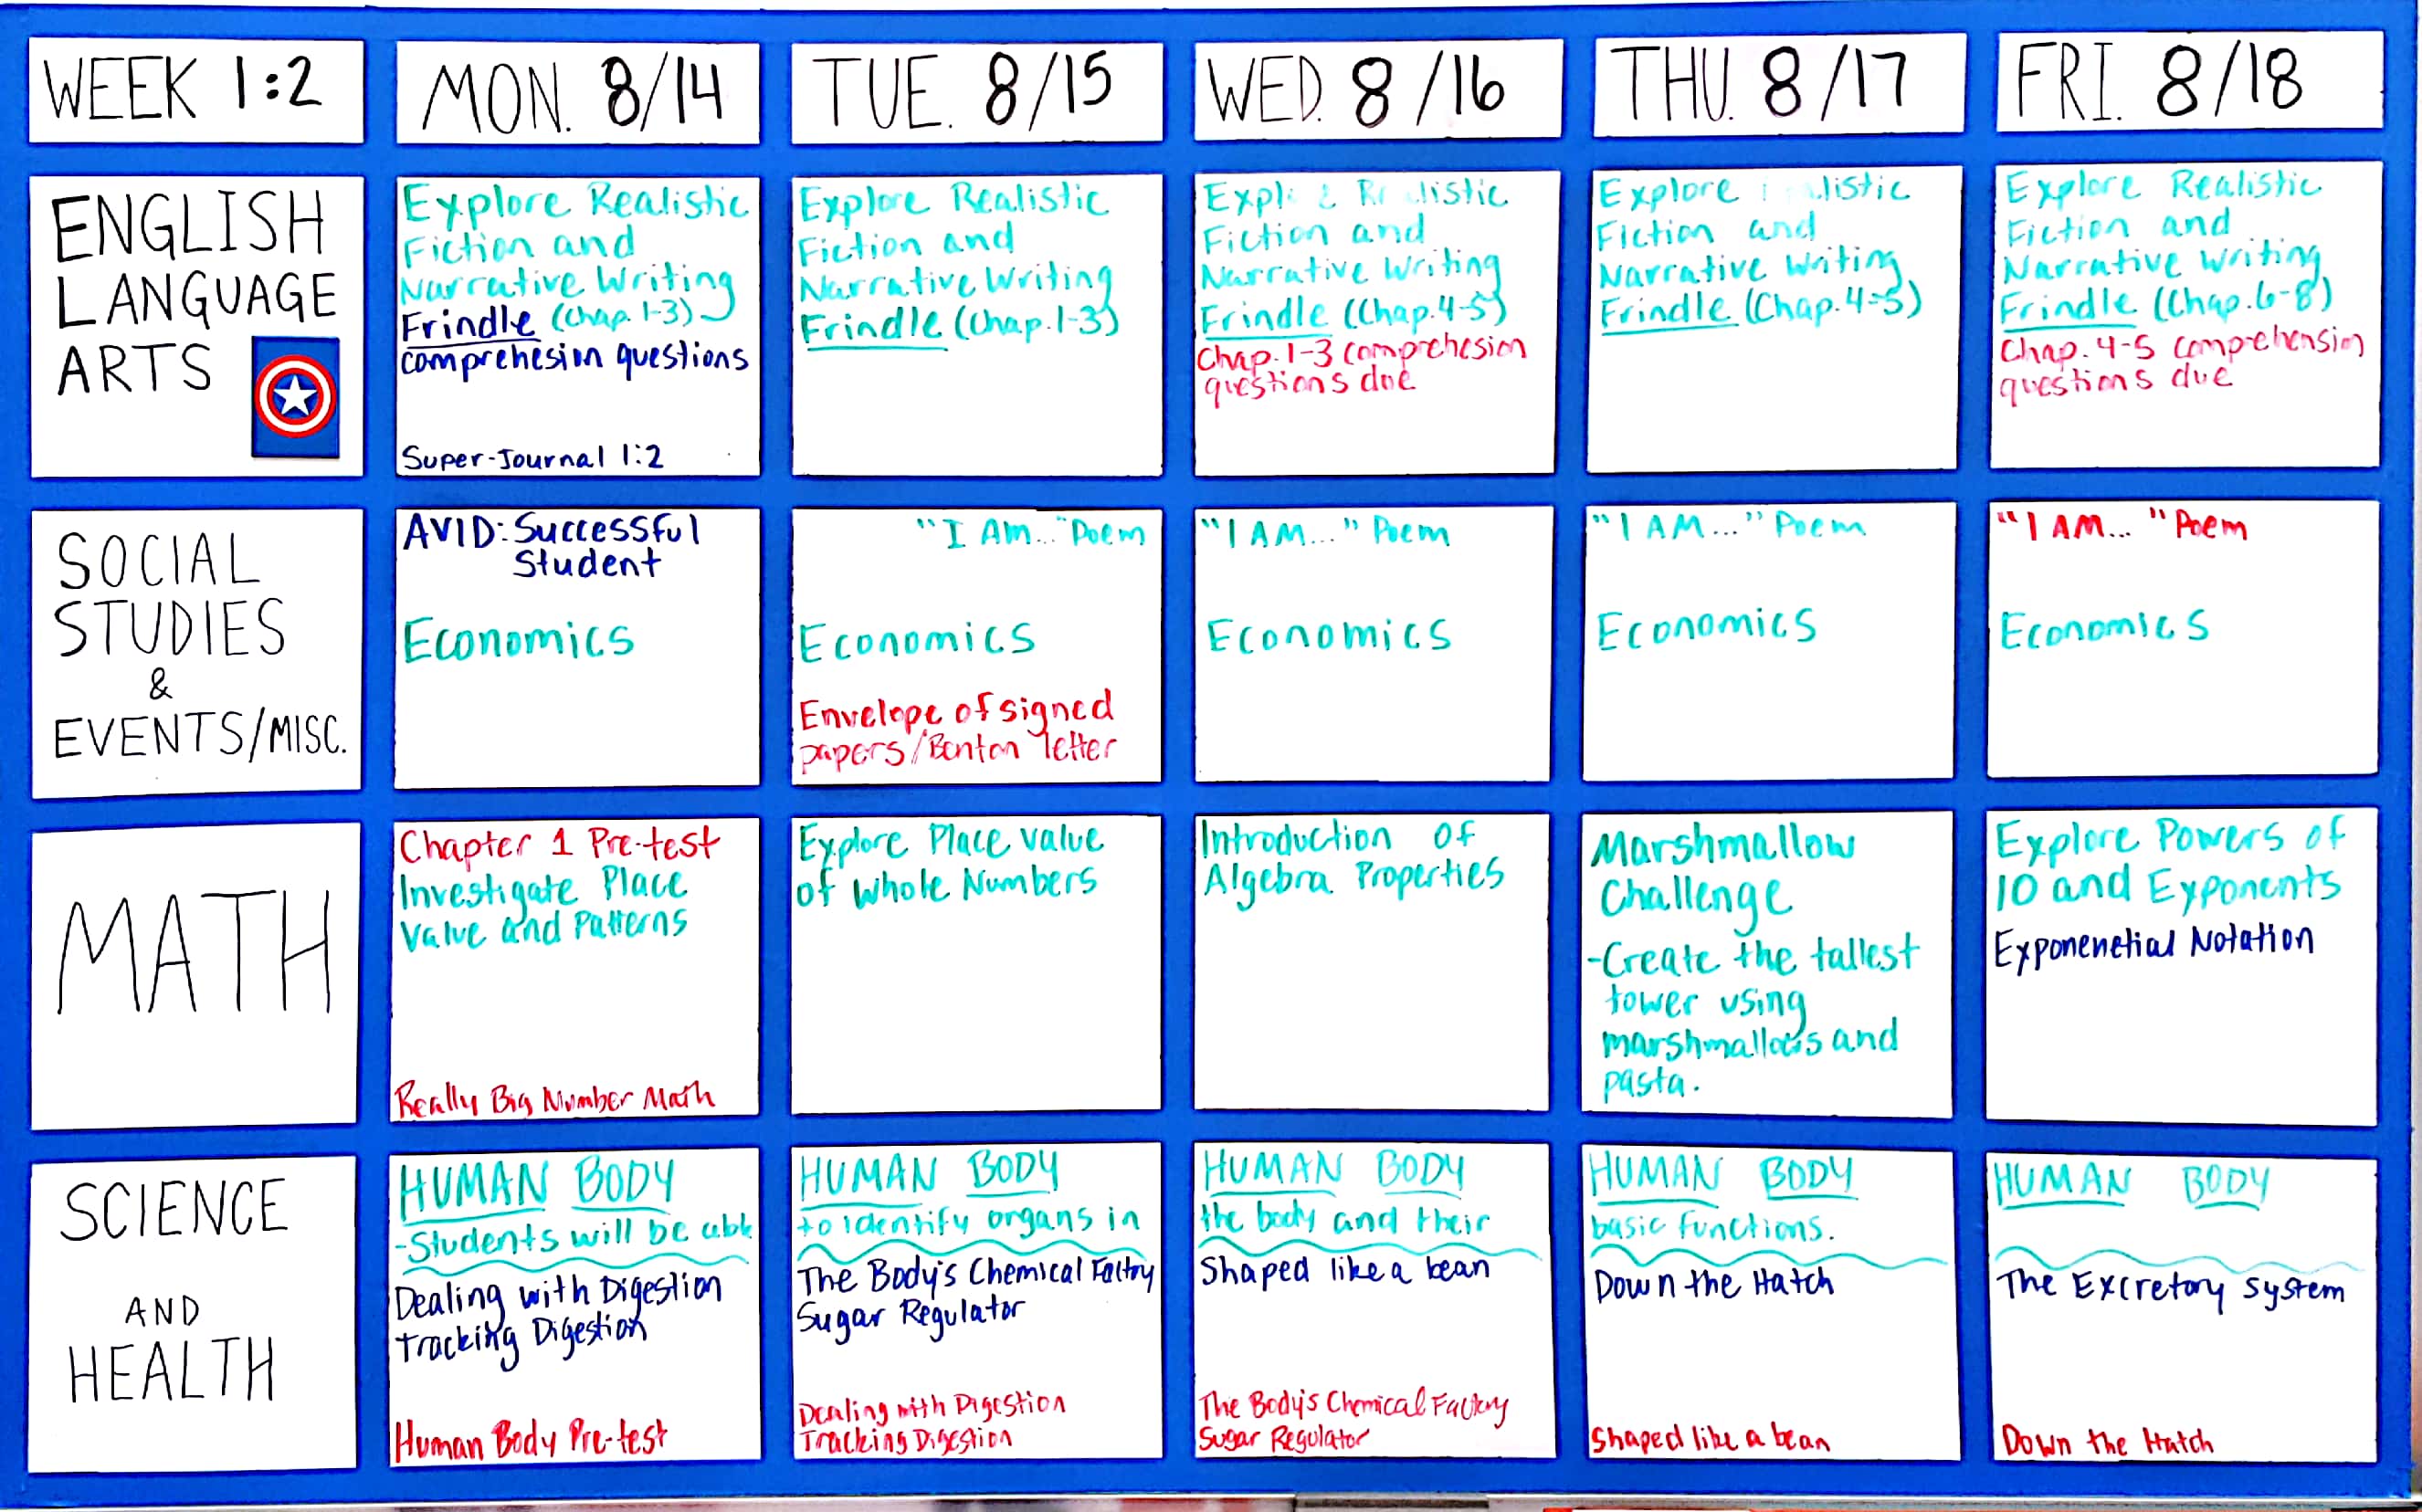 WEEK 1:2
MON. 8/14
TUE. 8/15
WED. 8/16
THU. 8/17
FRI. 8/18
ENGLISH
LANGUAGE
ARTS
Explore Realistic
Fiction and
Narrative Writing
Frindle (Chap. 1-3)
comprehesion questions
Super-Journal 1:2
Explore Realistic
Fiction and
Narrative Writing
Frindle (Chap. 1-3)
Fiction and
Narrative Writing
Frindle (Chap. 4-5)
Chap. 1-3 comprehesion
questions due
Explore
Fiction and
Narrative Writing
Frindle (Chap. 4-5)
Explore Realistic
Fiction and
Narrative Writing
Frindle (Chap. 6-8)
Chap. 4-5 comprehension
questions due
SOCIAL
STUDIES
&
EVENTS/MISC.
AVID: Successful
Student
Economics
"I Am..." Poem
Economics
Envelope of signed
papers/Benton letter
"I AM..." Poem
Economics
"I AM..." Poem
Economics
"I AM... " Poem
Economics
MATH
Chapter 1 Pre-test
Investigate Place
Value and Patterns
Really Big Number Math
Explore Place Value
of Whole Numbers
Introduction of
Algebra Properties
Marshmallow
Challenge
-Create the tallest
tower using
marshmallows and
pasta.
Explore Powers of
10 and Exponents
Exponenetial Notation
SCIENCE
AND
HEALTH
HUMAN BODY
-Students will be able
Dealing with Digestion
Tracking Digestion
Human Body Pre-test
HUMAN BODY
to identify organs in
The Body's Chemical Factory
Sugar Regulator
Dealing with Digestion
Tracking Digestion
HUMAN BODY
the body and their
Shaped like a bean
The Body's Chemical Factory
Sugar Regulator
HUMAN BODY
basic functions.
Down the Hatch
Shaped like a bean
HUMAN BODY
The Excretory System
Down the Hatch